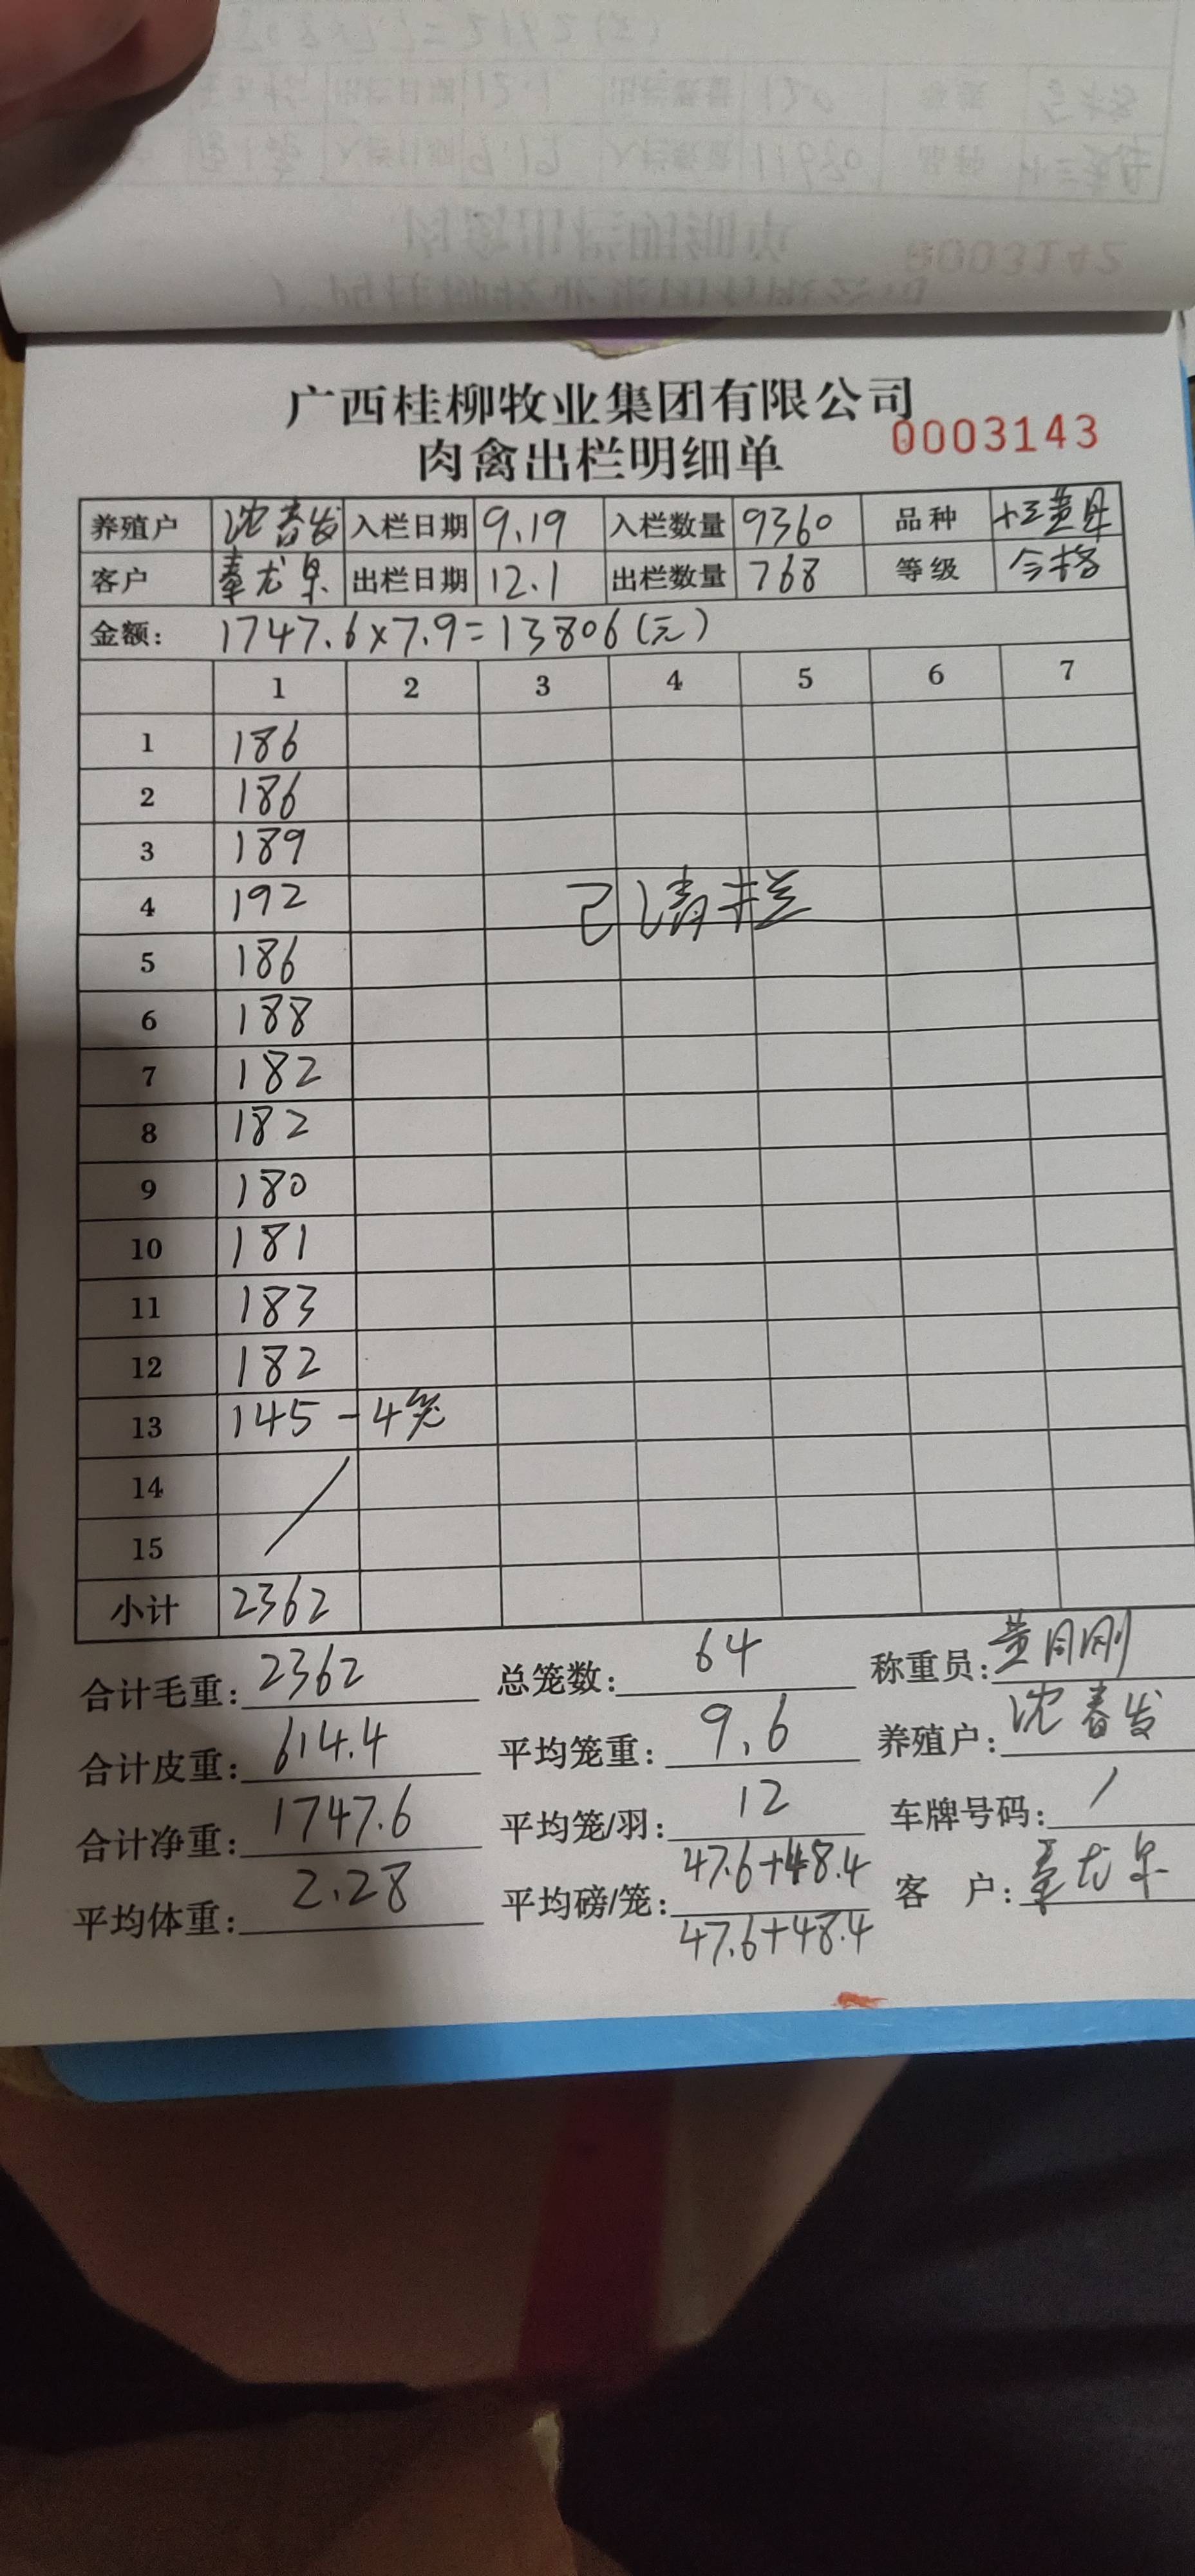 广西桂柳牧业集团有限公司
肉禽出栏明细单 0003143
养殖户 沈春发 入栏日期 9.19 入栏数量 9360 品种 十三黄母
客户 覃龙泉 出栏日期 12.1 出栏数量 768 等级 合格
金额: 1747.6×7.9=13806(元)
1 2 3 4 5 6 7
1 186
2 186
3 189
4 192 已清栏
5 186
6 188
7 182
8 182
9 180
10 181
11 183
12 182
13 145 - 4笼
14
15
小计 2362
合计毛重: 2362 总笼数: 64 称重员: 黄同刚
合计皮重: 614.4 平均笼重: 9.6 养殖户: 沈春发
合计净重: 1747.6 平均笼/羽: 12 车牌号码: /
平均体重: 2.28 平均磅/笼: 47.6+48.4 客 户:
47.6+48.4